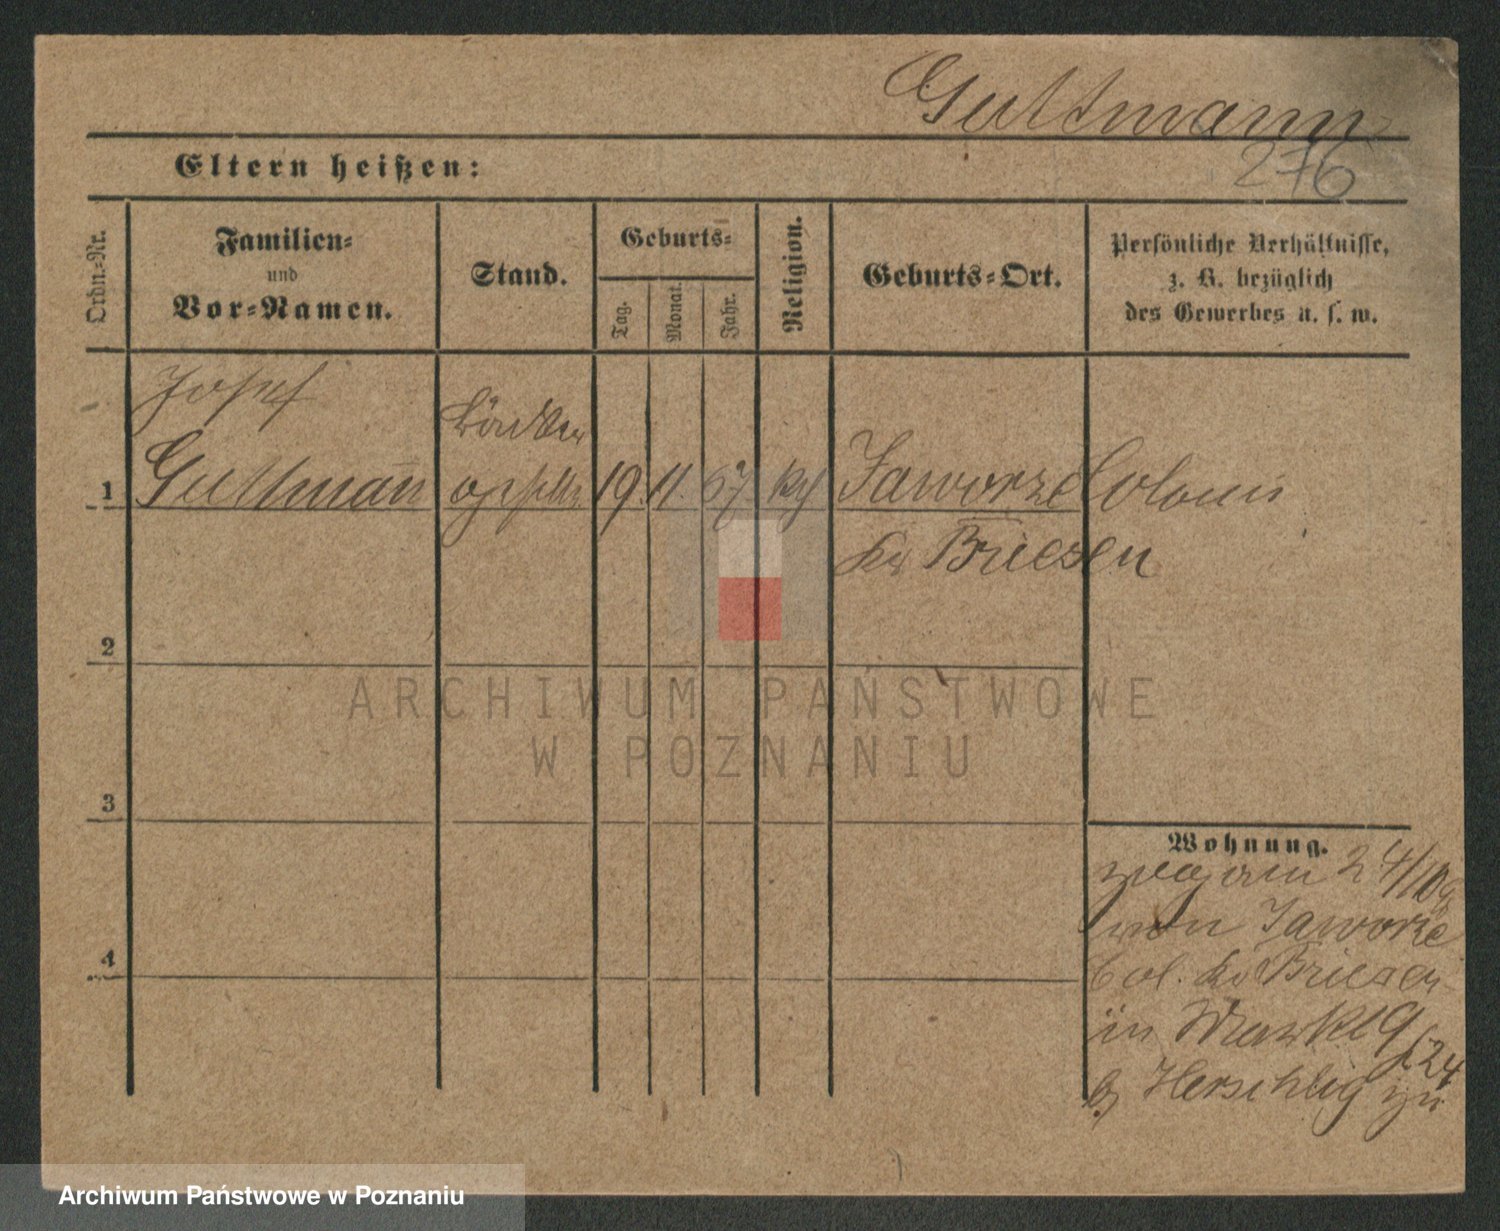 Guttmann
276
Eltern heißen:
Ordn.-Nr.
Familien-
und
Vor-Namen.
Stand.
Geburts-
Tag.
Monat.
Jahr.
Religion.
Geburts-Ort.
Persönliche Verhältnisse,
z. B. bezüglich
des Gewerbes u. s. w.
Josef
1 Guttmann 19. 11. 67 Jaworze Colonie
Kr Briesen
2
3
4
Wohnung.
zugezogen 24/10
von Jaworze
Col. Kr Briesen
in Markt 9
b/ Herschlig zu
ARCHIWUM PAŃSTWOWE
W POZNANIU
Archiwum Państwowe w Poznaniu